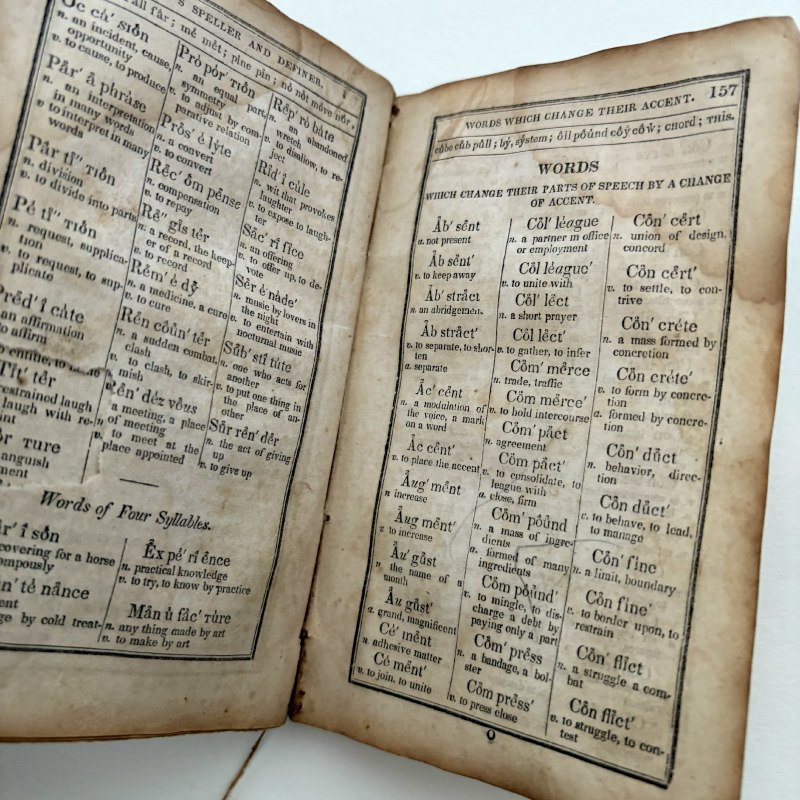 S SPELLER AND DEFINER.
fåll fär; mé mét; pine pin; nó nôt móve nůr,
Oc cā' sion
n. an incident, cause,
opportunity
v. to cause, to produce
Pår' å phråse
n. an interpretation
in many words
v to interpret in many
words
Pår tî" tion
n. division
v. to divide into parts
Pé tî" tion
n. request, supplica-
tion
v. to request, to sup-
plicate
Préd' î cåte
an affirmation
to affirm
Tît' tér
restrained laugh
laugh with re-
ture
anguish
ment
Pró pór' tion
n. an equal part,
symmetry
v. to adjust by com-
parative relation
Prôs' é lýte
n. a convert
v. to convert
Réc' ôm pénse
n. compensation
v. to repay
Ré" gîs tér
n. a record, the keep-
er of a record
v. to record
Rém' é dý
n. a medicine, a cure
v. to cure
Rén cöůn' tér
n. a sudden combat,
clash
v. to clash, to skir-
mish
Rén' déz vöus
n. a meeting, a place
of meeting
v. to meet at the
place appointed
Rép' ró båte
n. an abandoned
wretch
v. to disallow, to re-
ject
Rîd' î cůle
n. wit that provokes
laughter
v. to expose to laugh-
ter
Såc' rî fîce
n. an offering
v. to offer up, to de-
vote
Sér é nåde'
n. music by lovers in
the night
v. to entertain with
nocturnal music
Sůb' stî tůte
n. one who acts for
another
v. to put one thing in
the place of an-
other
Sůr rén' dér
n. the act of giving
up
v. to give up
Words of Four Syllables.
î són
covering for a horse
pompously
té nånce
by cold treat-
Éx pé' rî énce
n. practical knowledge
v. to try, to know by practice
Mån ů fåc' tůre
n. any thing made by art
v. to make by art
WORDS WHICH CHANGE THEIR ACCENT. 157
cůbe cůb půll; bý, sýstem; öil pöůnd cöý cöẘ; CHORD; THIS.
WORDS
WHICH CHANGE THEIR PARTS OF SPEECH BY A CHANGE
OF ACCENT.
Åb' sént
a. not present
Åb sént'
v. to keep away
Åb' stråct
n. an abridgement.
Åb stråct'
v. to separate, to shor-
ten
a. separate
Åc' cént
n. a modulation of
the voice, a mark
on a word
Åc cént'
v. to place the accent
Åug' mént
n increase
Åug mént'
v to increase
Åu' gůst
n. the name of a
month
Åu gůst'
a. grand, magnificent
Cé' mént
n adhesive matter
Cé mént'
v. to join, to unite
Côl' léague
n. a partner in office
or employment
Côl léague'
v. to unite with
Côl' léct
n. a short prayer
Côl léct'
v. to gather, to infer
Côm' mérce
n. trade, traffic
Côm mérce'
v. to hold intercourse
Côm' påct
n. agreement
Côm påct'
v. to consolidate, to
league with
a. close, firm
Côm' pöůnd
n. a mass of ingre-
dients
a. formed of many
ingredients
Côm pöůnd'
v. to mingle, to dis-
charge a debt by
paying only a part
Côm' préss
n. a bandage, a bol-
ster
Côm préss'
v. to press close
Côn' cért
n. union of design,
concord
Côn cért'
v. to settle, to con-
trive
Côn' créte
n. a mass formed by
concretion
Côn créte'
v. to form by concre-
tion
a. formed by concre-
tion
Côn' důct
n. behavior, direc-
tion
Côn důct'
v. to behave, to lead,
to manage
Côn' fîne
n. a limit, boundary
Côn fîne'
v. to border upon, to
restrain
Côn' flîct
n. a struggle a com-
bat
Côn flîct'
v. to struggle, to con-
test
O